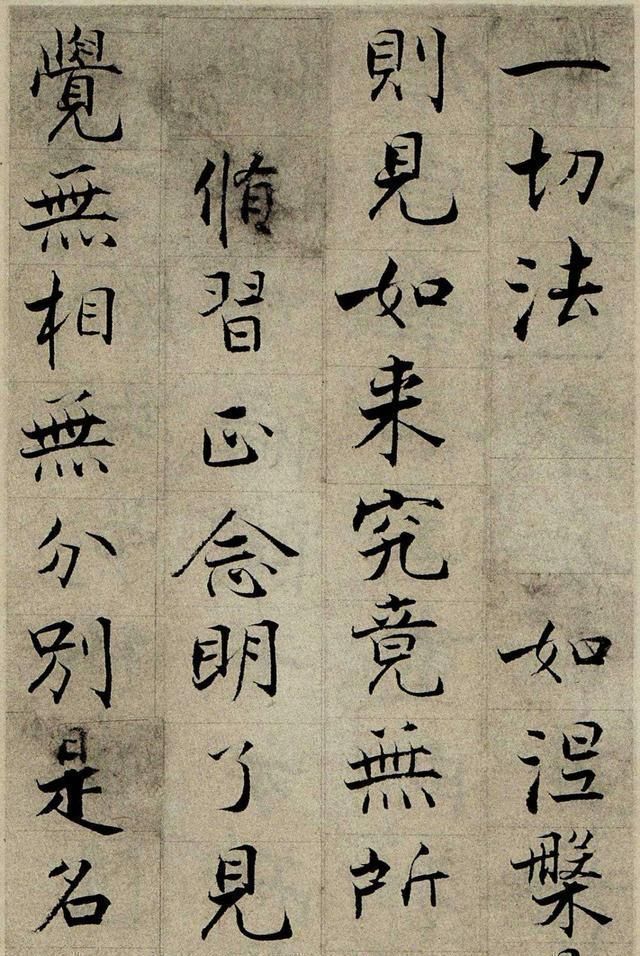 一切法 如涅槃
則見如来究竟無所
脩習正念明了見
覺無相無分別是名